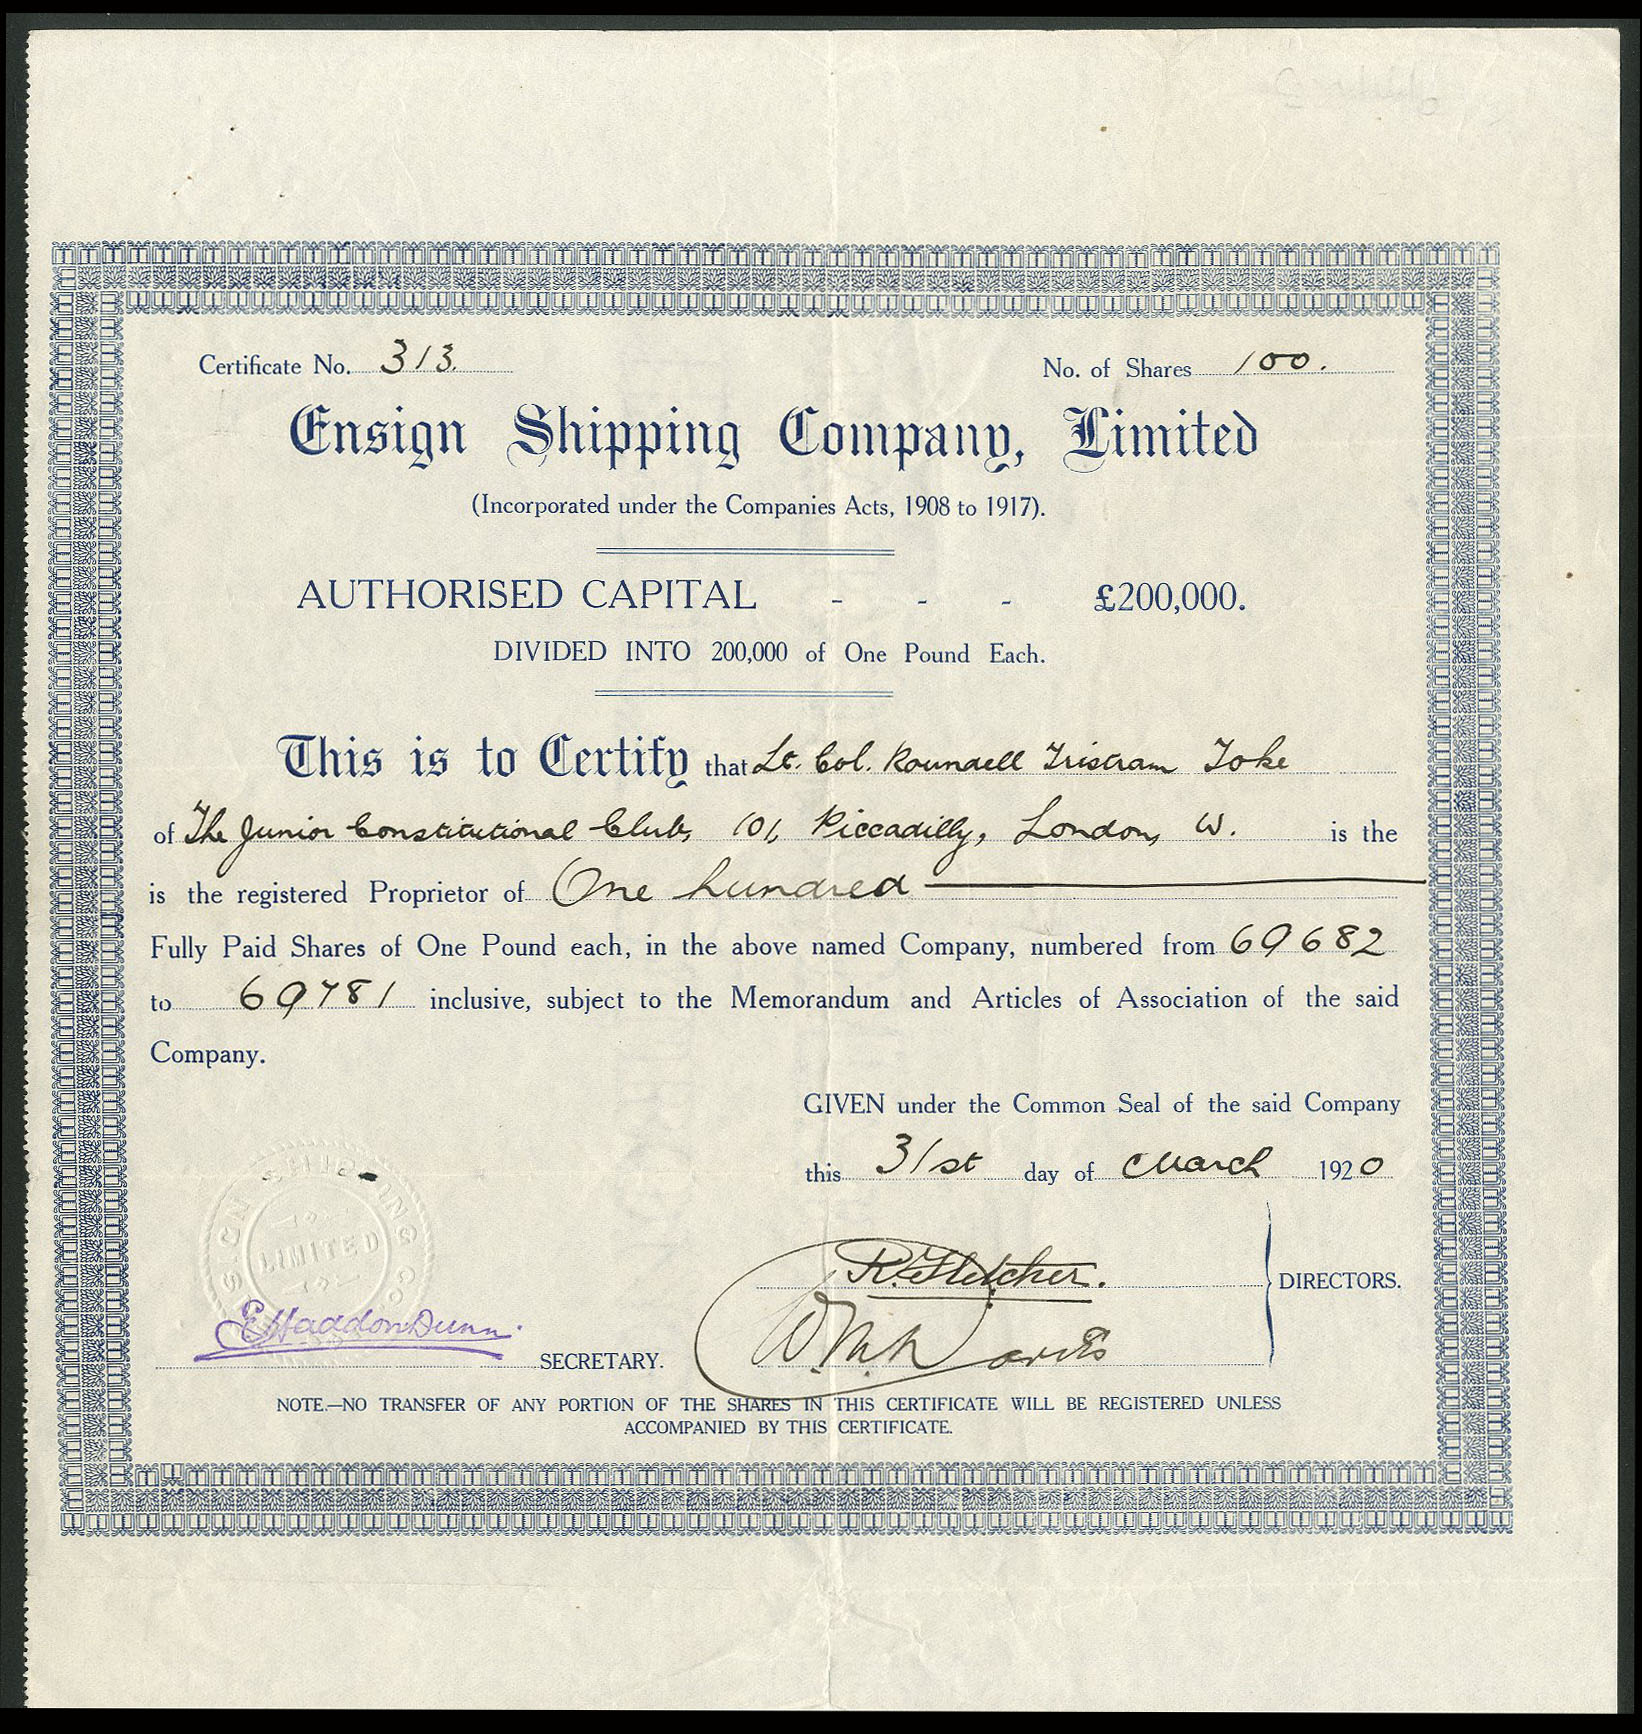 Certificate No. 313. No. of Shares 100.
Ensign Shipping Company, Limited
(Incorporated under the Companies Acts, 1908 to 1917).
AUTHORISED CAPITAL - - - £200,000.
DIVIDED INTO 200,000 of One Pound Each.
This is to Certify that Lt. Col. Roundell Tristram Toke
of The Junior Constitutional Club, 101, Piccadilly, London, W. is the
is the registered Proprietor of One hundred
Fully Paid Shares of One Pound each, in the above named Company, numbered from 69682
to 69781 inclusive, subject to the Memorandum and Articles of Association of the said
Company.
GIVEN under the Common Seal of the said Company
this 31st day of March 1920
SHIPPING CO
LIMITED
R. Fletcher.
DIRECTORS.
E Haddon Dunn.
SECRETARY.
NOTE.—NO TRANSFER OF ANY PORTION OF THE SHARES IN THIS CERTIFICATE WILL BE REGISTERED UNLESS
ACCOMPANIED BY THIS CERTIFICATE.